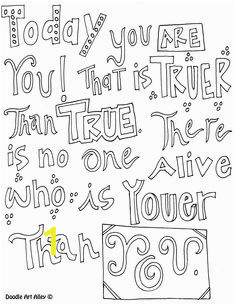 Today you ARE
You! That is TRUER
Than TRUE. There
is no one Alive
who is Youer
Than 1
YOU
Doodle Art Alley ©